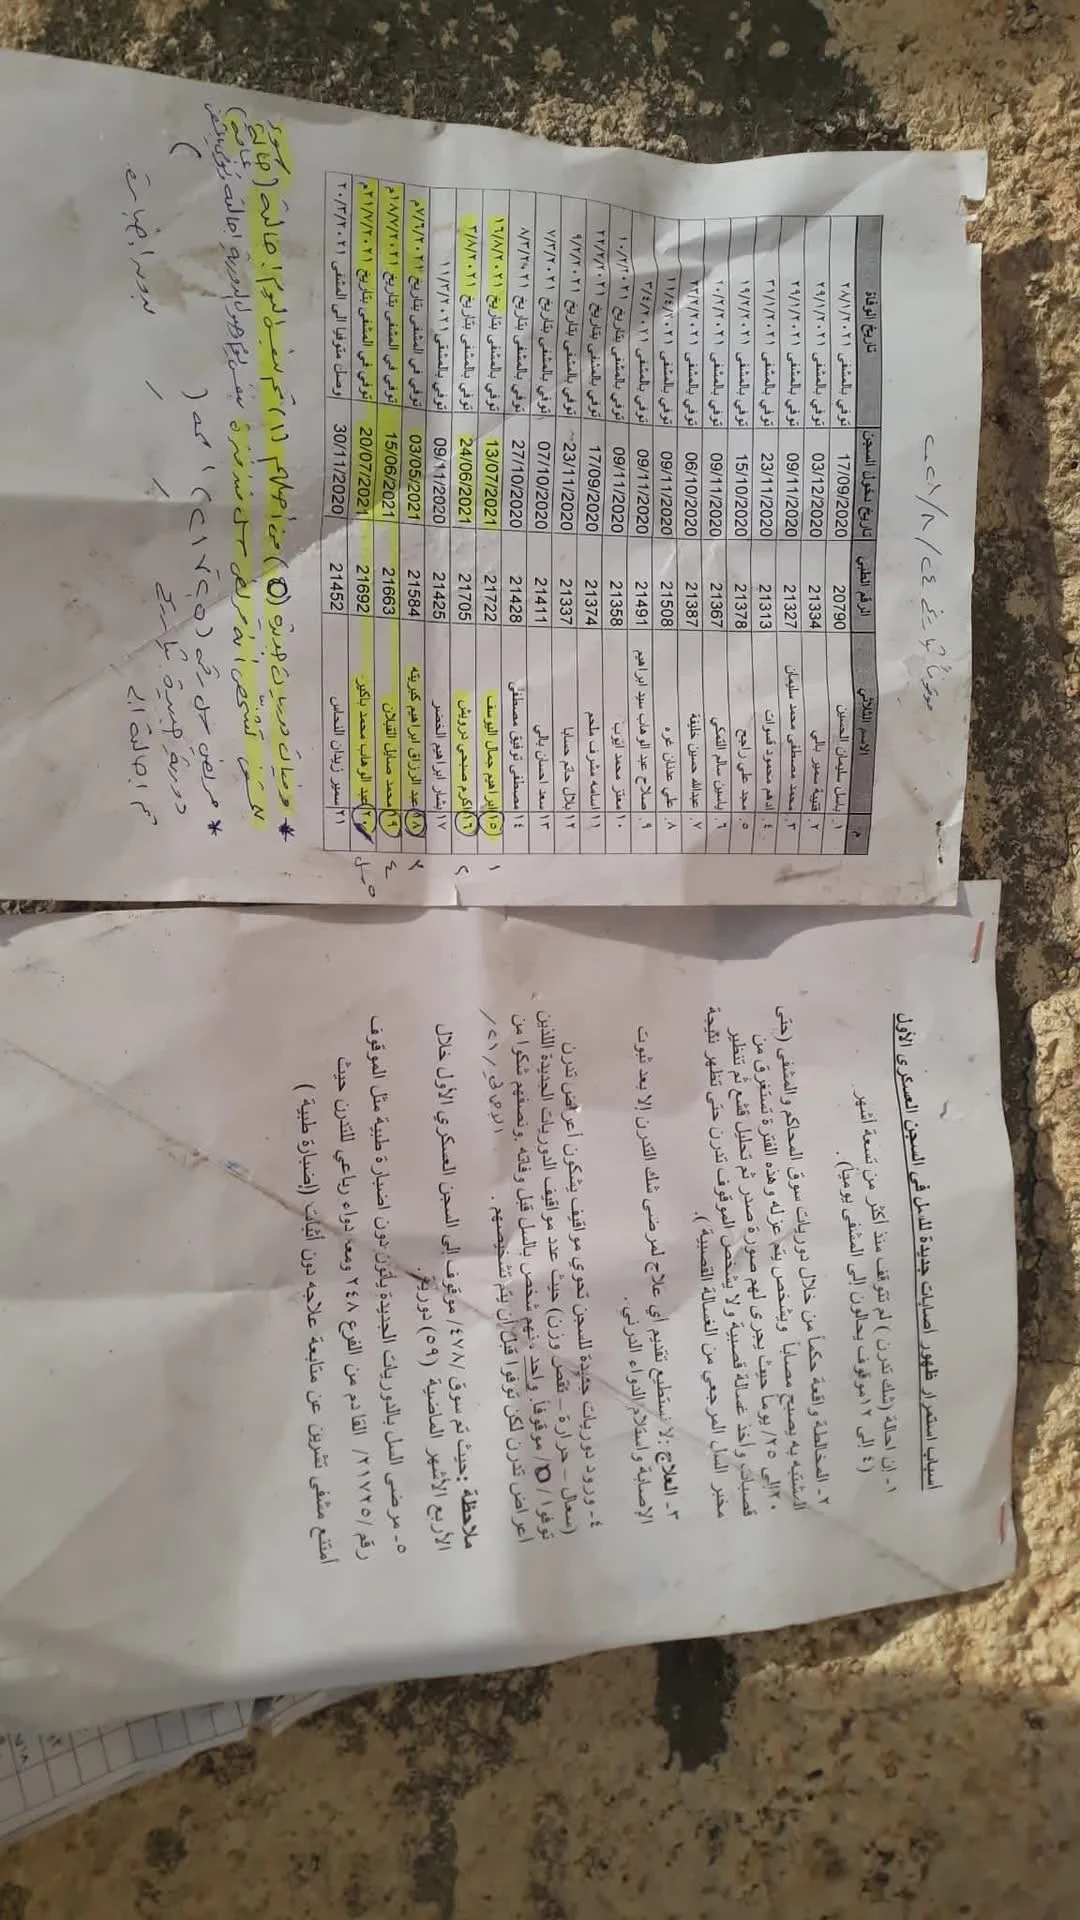 موقوفاً بتاريخ ٢٤/٨/٢٠٢١
م الاسم الثلاثي الرقم الطبي تاريخ دخول السجن تاريخ الوفاة
١. باسل سليمان الحسين 20790 17/09/2020 توفي بالمشفى ٢٨/١/٢٠٢١
٢. قتيبة سمير بالي 21334 03/12/2020 توفي بالمشفى ٢٩/١/٢٠٢١
٣. محمد مصطفى محمد سليمان 21327 09/11/2020 توفي بالمشفى ٢٩/١/٢٠٢١
٤. ادهم محمود قسوات 21313 23/11/2020 توفي بالمشفى ٣١/١/٢٠٢١
٥. مجد علي راجح 21378 15/10/2020 توفي بالمشفى ١٩/٢/٢٠٢١
٦. ياسين سالم التركي 21367 09/11/2020 توفي بالمشفى ٢٠/٢/٢٠٢١
٧. عبدالله حسين خليفة 21387 06/10/2020 توفي بالمشفى ٢٢/٢/٢٠٢١
٨. علي عدنان غره 21508 09/11/2020 توفي بالمشفى ١١/٤/٢٠٢١
٩. صلاح عبد الوهاب سيد ابراهيم 21491 09/11/2020 توفي بالمشفى ٣/٤/٢٠٢١
١٠. معتز محمد ايوب 21358 09/11/2020 توفي بالمشفى بتاريخ ١٠/٢/٢٠٢١
١١. اسامه مشرف ملحم 21374 17/09/2020 توفي بالمشفى بتاريخ ٢٢/٢/٢٠٢١
١٢. بلال حاتم حسابا 21337 23/11/2020 توفي بالمشفى بتاريخ ٩/٢/٢٠٢١
١٣. سعد احسان بالي 21411 07/10/2020 توفي بالمشفى بتاريخ ٧/٣/٢٠٢١
١٤. مصطفى توفيق مصطفى 21428 27/10/2020 توفي بالمشفى بتاريخ ٨/٣/٢٠٢١
١٥. ابراهيم جمال اليوسف 21722 13/07/2021 توفي بالمشفى بتاريخ ١٦/٨/٢٠٢١ ١
١٦. اكرم صبحي درويش 21705 24/06/2021 توفي بالمشفى بتاريخ ٣/٨/٢٠٢١ ٢
١٧. بشار ابراهيم الخضر 21425 09/11/2020 توفي بالمشفى ١١/٣/٢٠٢١
١٨. عبد الرزاق ابراهيم كبريته 21584 03/05/2021 توفي في المشفى بتاريخ ٧/٦/٢٠٢١م ٣
١٩. محمد صايل القبلان 21663 15/06/2021 توفي في المشفى بتاريخ ١٨/٧/٢٠٢١م ٤
٢٠. عبد الوهاب محمد باكير 21692 20/07/2021 توفي في المشفى بتاريخ ٢١/٧/٢٠٢١م ٥ سل
٢١. سمير زيدان النحاس 21452 30/11/2020 وصل متوفيا الى المشفى ٢٠/٣/٢٠٢١
* وفيات دوريات جديدة (٥) من أصلهم (١) تم
* مريض سل رقم (٢١٧٢٥)
دورية جديدة بتاريخ / /
تم احالته الى بدون اضبارة
أسباب استمرار ظهور اصابات جديدة للسل في السجن العسكري الأول
١- إن احالة (شك تدرن) لم تتوقف منذ أكثر من تسعة أشهر
(٤ إلى ١٢ موقوف يحالون إلى المشفى يومياً).
٢- المخالطة واقعة حكماً من خلال دوريات سوق المحاكم والمشفى (حتى
المشتبه به يصبح مصاباً ويشخص يتم عزله وهذه الفترة تستغرق من
٢٠ إلى /٢٥ يوماً حيث يجرى لهم صورة صدر ثم تحليل قشع ثم تنظير
قصبات وأخذ غسالة قصبية ولا يشخص الموقوف تدرن حتى تظهر نتيجة
مخبر السل المرجعي من الغسالة القصبية).
٣- العلاج: لا نستطيع تقديم أي علاج لمرضى شك التدرن إلا بعد ثبوت
الإصابة واستلام الدواء الدرني.
٤- ورود دوريات جديدة للسجن تحوي مواقيف يشكون أعراض تدرن
(سعال – حرارة – نقص وزن) حيث عدد مواقيف الدوريات الجديدة اللذين
توفوا /٥/ موقوفاً. واحد منهم شخص بالسل قبل وفاته ونصفهم شكوا من
اعراض تدرن لكن توفوا قبل أن يتم تشخيصهم. الاجمالي /٢١/
ملاحظة: حيث تم سوق /٤٧٨/ موقوف إلى السجن العسكري الأول خلال
الأربع الأشهر الماضية (٥٩) دورية.
٥- مرضى السل بالدوريات الجديدة يأتون دون اضبارة طبية مثل الموقوف
رقم /٢١٧٢٥/ القادم من الفرع ٢٤٨ ومعه دواء رباعي للتدرن حيث
امتنع مشفى تشرين عن متابعة علاجه دون أثبات (إضبارة طبية)